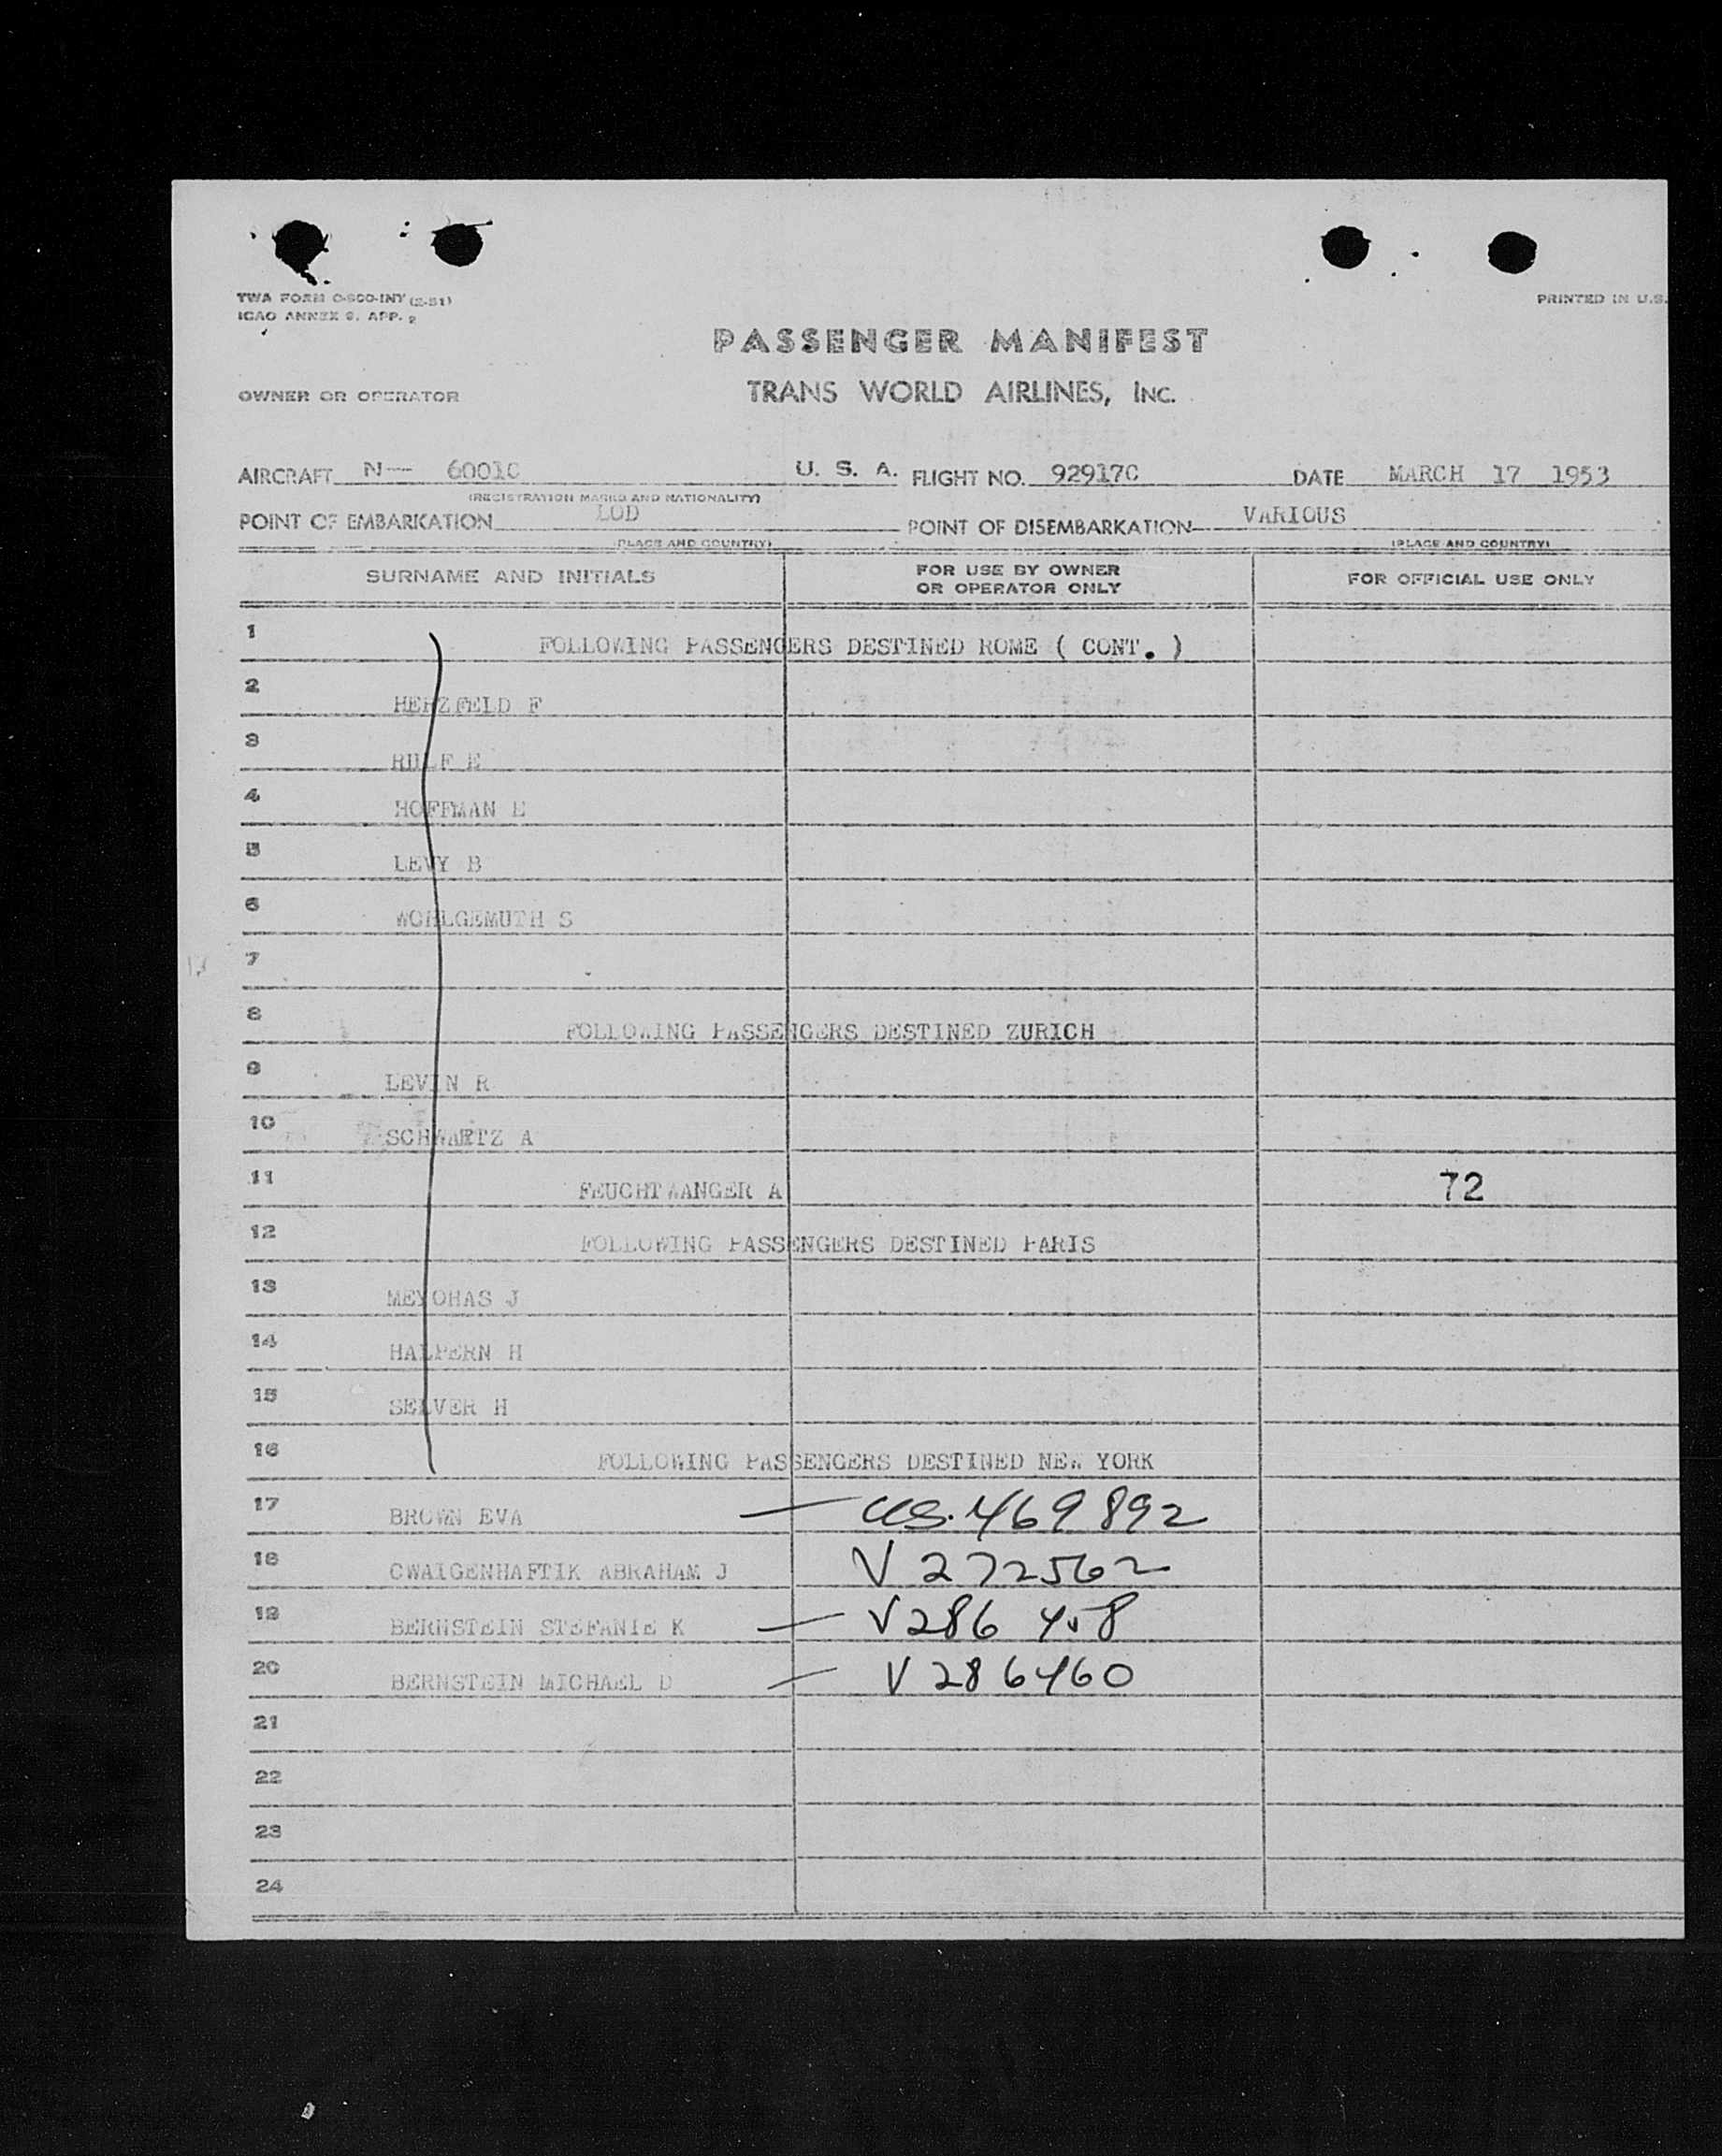 TWA FORM O-800-INY (2-51)
ICAO ANNEX 9. APP. 2
PRINTED IN U.S.
PASSENGER MANIFEST
OWNER OR OPERATOR
TRANS WORLD AIRLINES, INC.
AIRCRAFT N-- 6001C U. S. A. FLIGHT NO. 92917C DATE MARCH 17 1953
(REGISTRATION MARKS AND NATIONALITY)
POINT OF EMBARKATION LOD POINT OF DISEMBARKATION VARIOUS
(PLACE AND COUNTRY) (PLACE AND COUNTRY)
SURNAME AND INITIALS FOR USE BY OWNER OR OPERATOR ONLY FOR OFFICIAL USE ONLY
1 FOLLOWING PASSENGERS DESTINED ROME ( CONT. )
2 HERZFELD F
3 E
4 HOFFMAN E
5 LEVY B
6 WOHLGEMUTH S
7
8 FOLLOWING PASSENGERS DESTINED ZURICH
9 LEVIN R
10 SCHWARTZ A
11 FEUCHTWANGER A 72
12 FOLLOWING PASSENGERS DESTINED PARIS
13 MEYOHAS J
14 HALPERN H
15 SELVER H
16 FOLLOWING PASSENGERS DESTINED NEW YORK
17 BROWN EVA — US. 469892
18 CWAIGENHAFTIK ABRAHAM J V 272562
19 BERNSTEIN STEFANIE K — V 286 458
20 BERNSTEIN MICHAEL D — V 286460
21
22
23
24